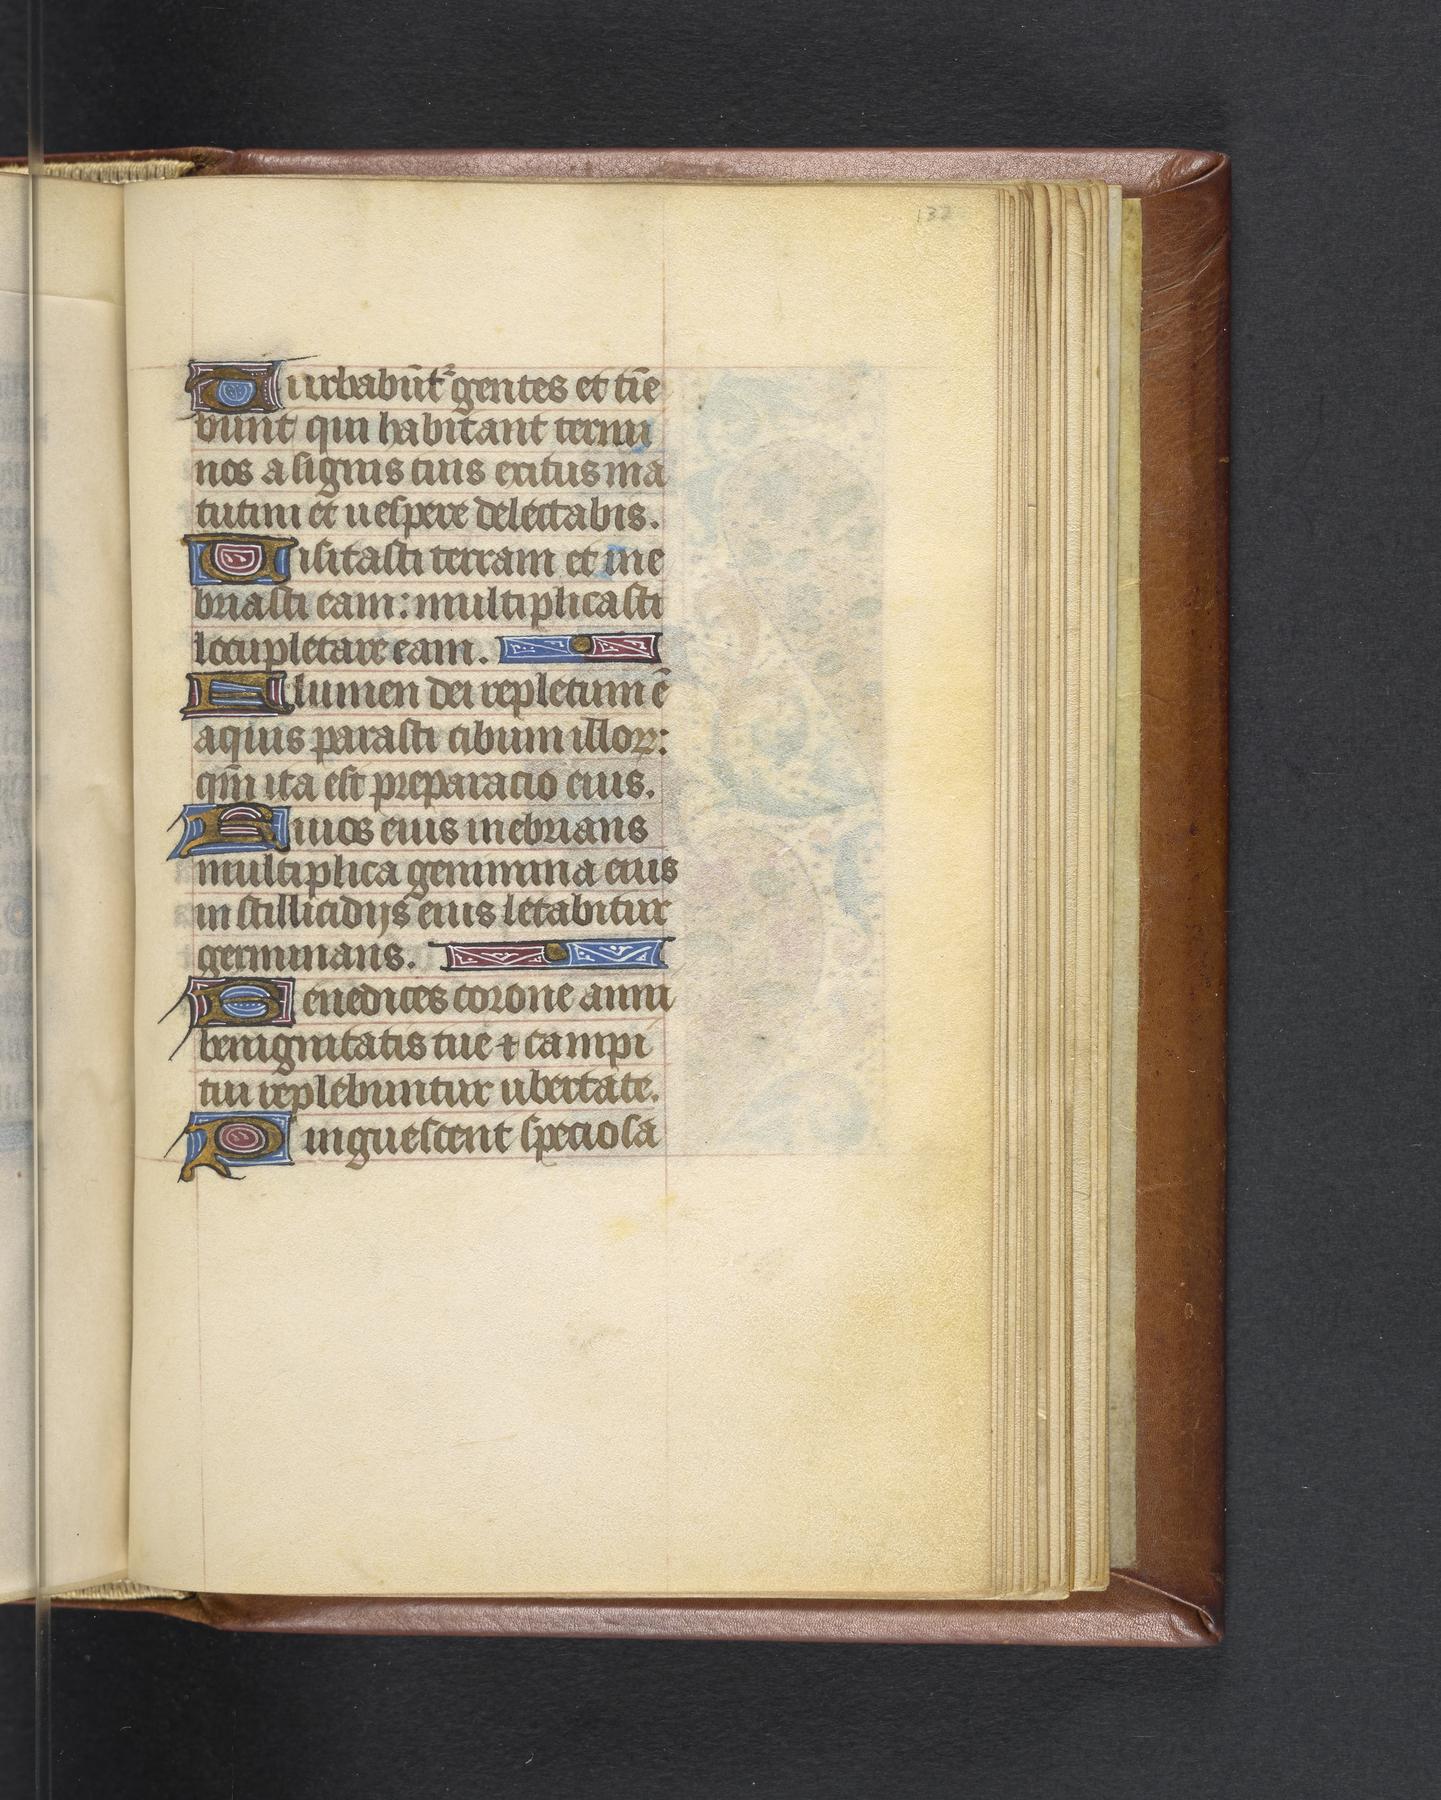 132
Turbabūt᷑ gentes et tīe
bunt qui habitant termi
nos a signis tuis exitus ma
tutini et uespere delectabis.
Uisitasti terram et ine
briasti eam: multiplicasti
locupletare eam.
Flumen dei repletum ē
aquis parasti cibum illoꝝ:
qm̄ ita est preparacio eius.
Riuos eius inebrians
multiplica genimina eius
in stillicidijs eius letabitur
germinans.
Benedices corone anni
benignitatis tue ⁊ campi
tui replebuntur ubertate.
Pinguescent speciosa